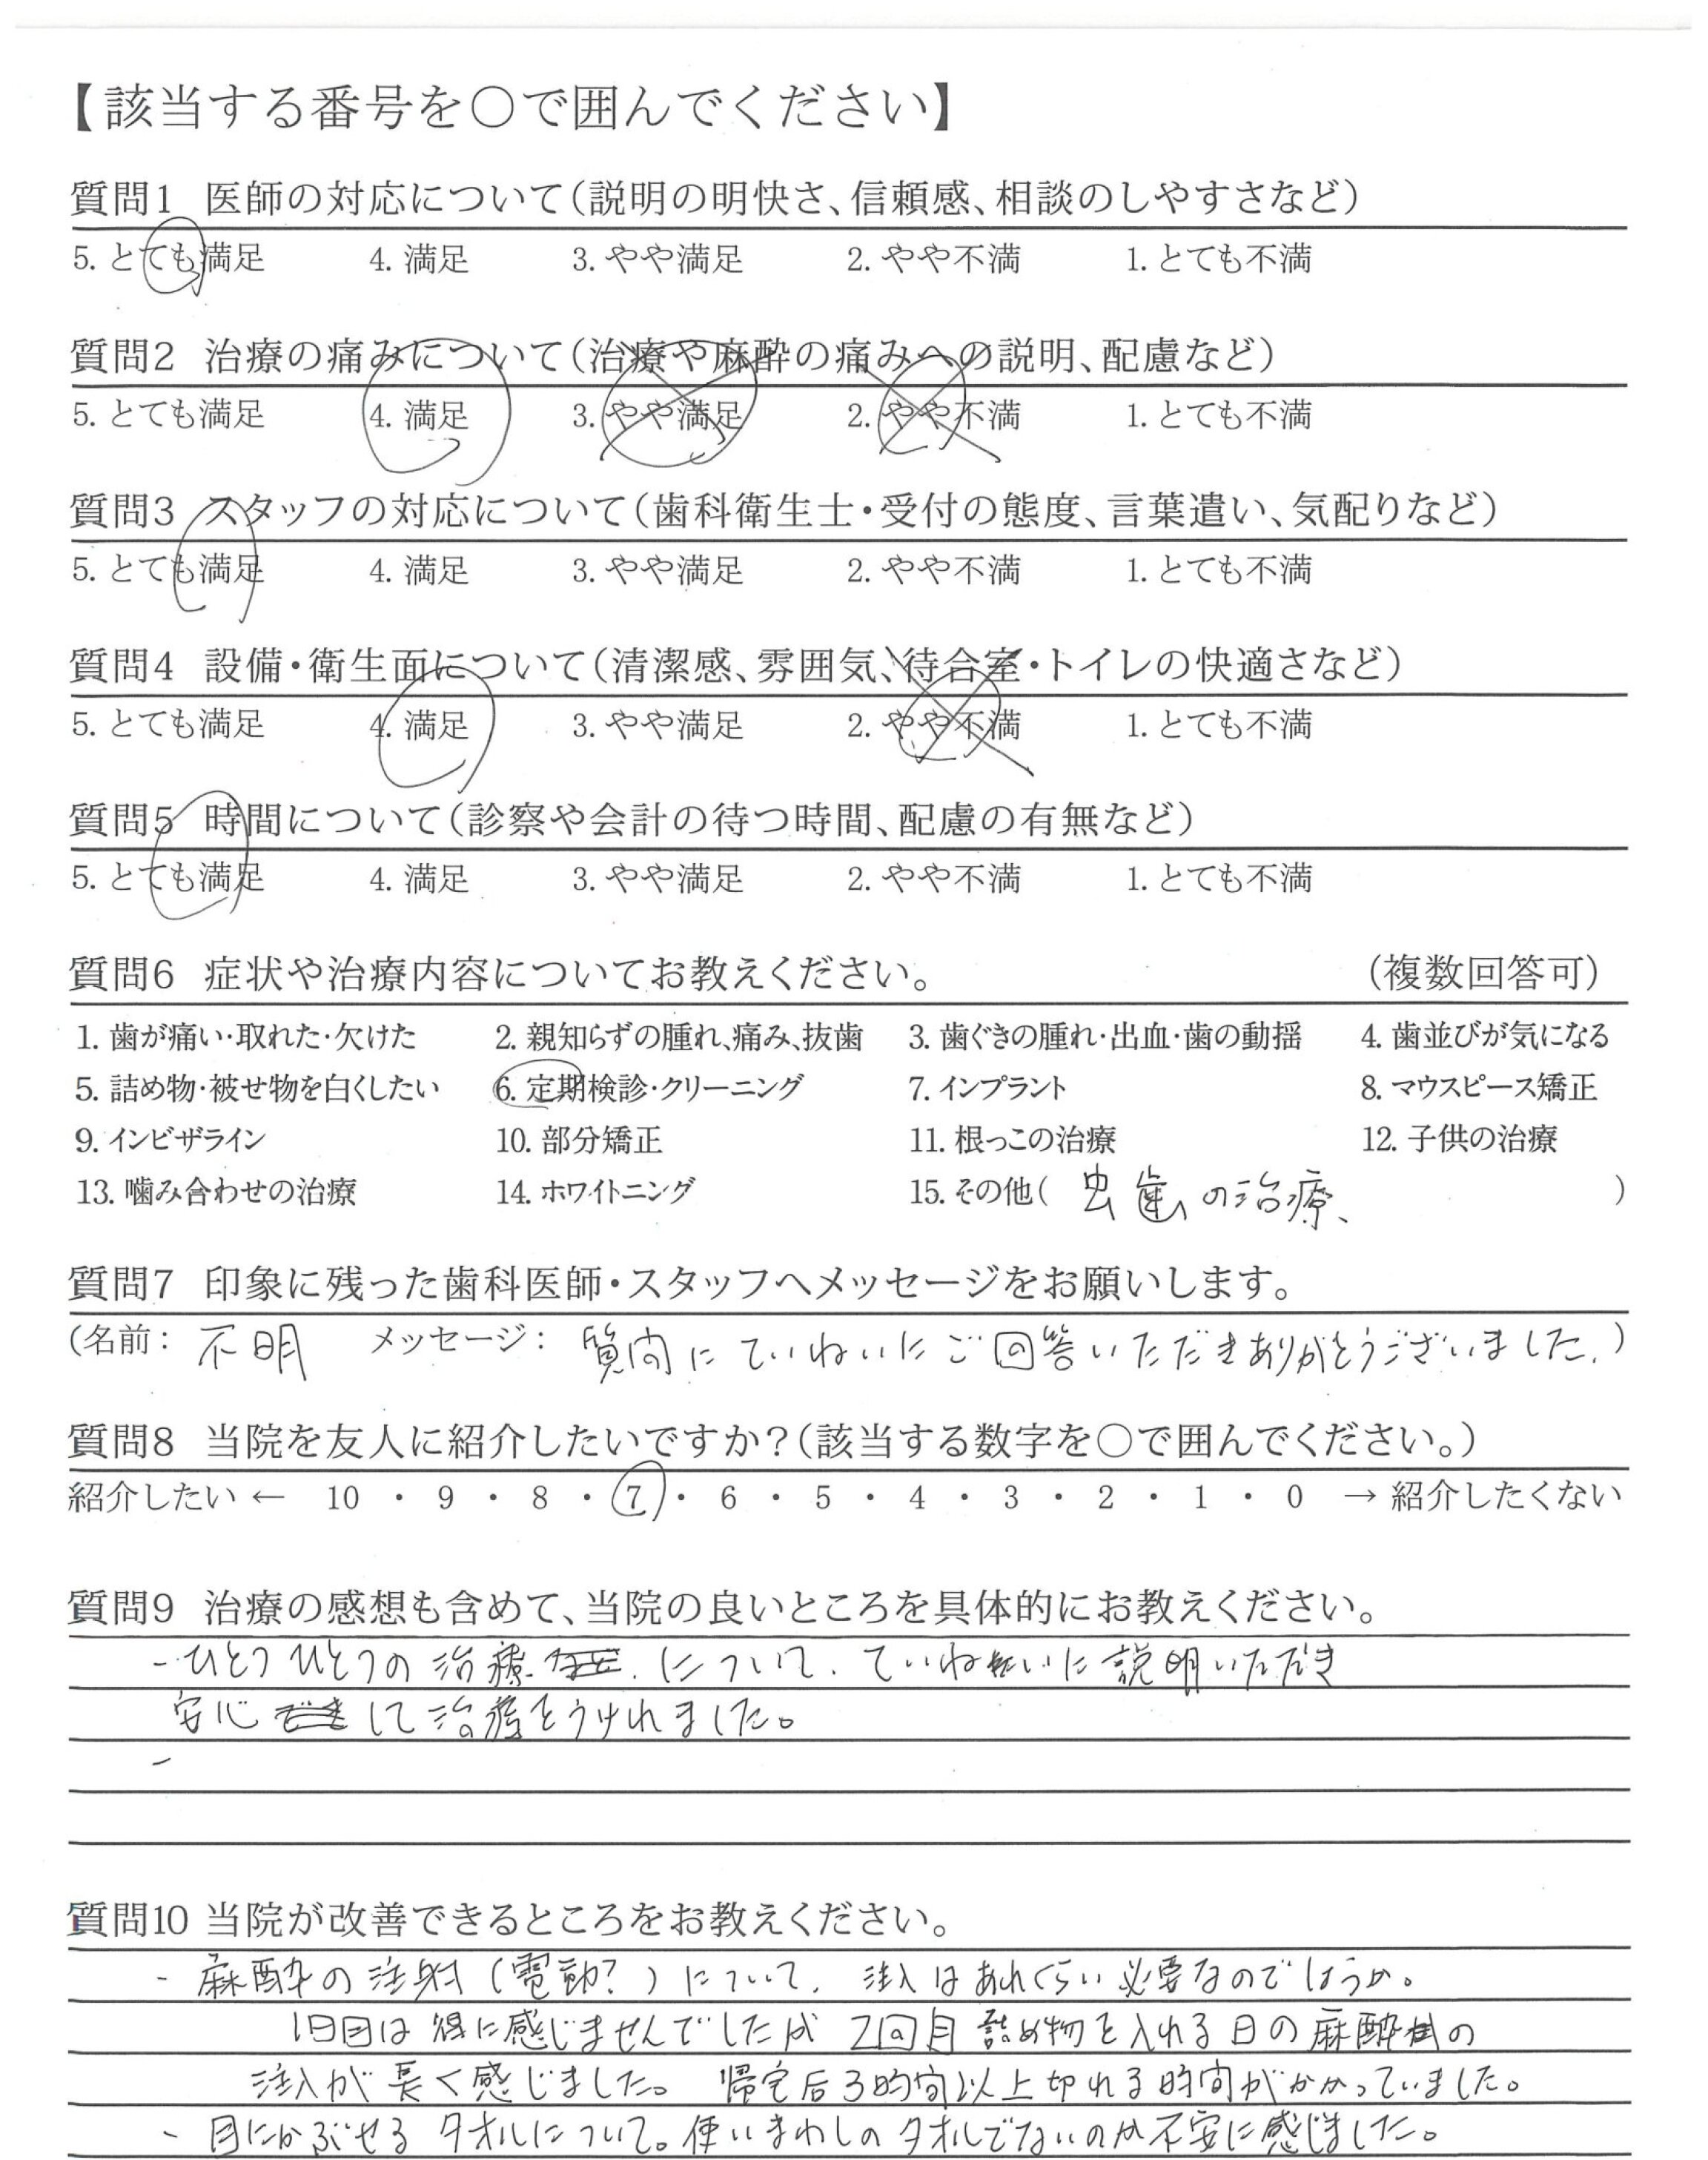 【該当する番号を○で囲んでください】
質問1 医師の対応について(説明の明快さ、信頼感、相談のしやすさなど)
5. とても満足 4. 満足 3. やや満足 2. やや不満 1. とても不満
質問2 治療の痛みについて(治療や麻酔の痛みへの説明、配慮など)
5. とても満足 4. 満足 3. やや満足 2. やや不満 1. とても不満
質問3 スタッフの対応について(歯科衛生士・受付の態度、言葉遣い、気配りなど)
5. とても満足 4. 満足 3. やや満足 2. やや不満 1. とても不満
質問4 設備・衛生面について(清潔感、雰囲気、待合室・トイレの快適さなど)
5. とても満足 4. 満足 3. やや満足 2. やや不満 1. とても不満
質問5 時間について(診察や会計の待つ時間、配慮の有無など)
5. とても満足 4. 満足 3. やや満足 2. やや不満 1. とても不満
質問6 症状や治療内容についてお教えください。 (複数回答可)
1. 歯が痛い・取れた・欠けた 2. 親知らずの腫れ、痛み、抜歯 3. 歯ぐきの腫れ・出血・歯の動揺 4. 歯並びが気になる
5. 詰め物・被せ物を白くしたい 6. 定期検診・クリーニング 7. インプラント 8. マウスピース矯正
9. インビザライン 10. 部分矯正 11. 根っこの治療 12. 子供の治療
13. 噛み合わせの治療 14. ホワイトニング 15. その他( 虫歯の治療、 )
質問7 印象に残った歯科医師・スタッフへメッセージをお願いします。
(名前: 不明 メッセージ: 質問にていねいにご回答いただきありがとうございました。)
質問8 当院を友人に紹介したいですか?(該当する数字を○で囲んでください。)
紹介したい ← 10 ・ 9 ・ 8 ・ 7 ・ 6 ・ 5 ・ 4 ・ 3 ・ 2 ・ 1 ・ 0 → 紹介したくない
質問9 治療の感想も含めて、当院の良いところを具体的にお教えください。
- ひとつひとつの治療について、ていねいに説明いただき
安心して治療をうけれました。
-
質問10 当院が改善できるところをお教えください。
- 麻酔の注射(電動?)について、注入はあれくらい必要なのでしょうか。
1日目は特に感じませんでしたが2回目詰め物を入れる日の麻酔の
注入が長く感じました。 帰宅后3時間以上切れる時間がかかっていました。
- 目にかぶせるタオルについて。使いまわしのタオルでないのか不安に感じました。